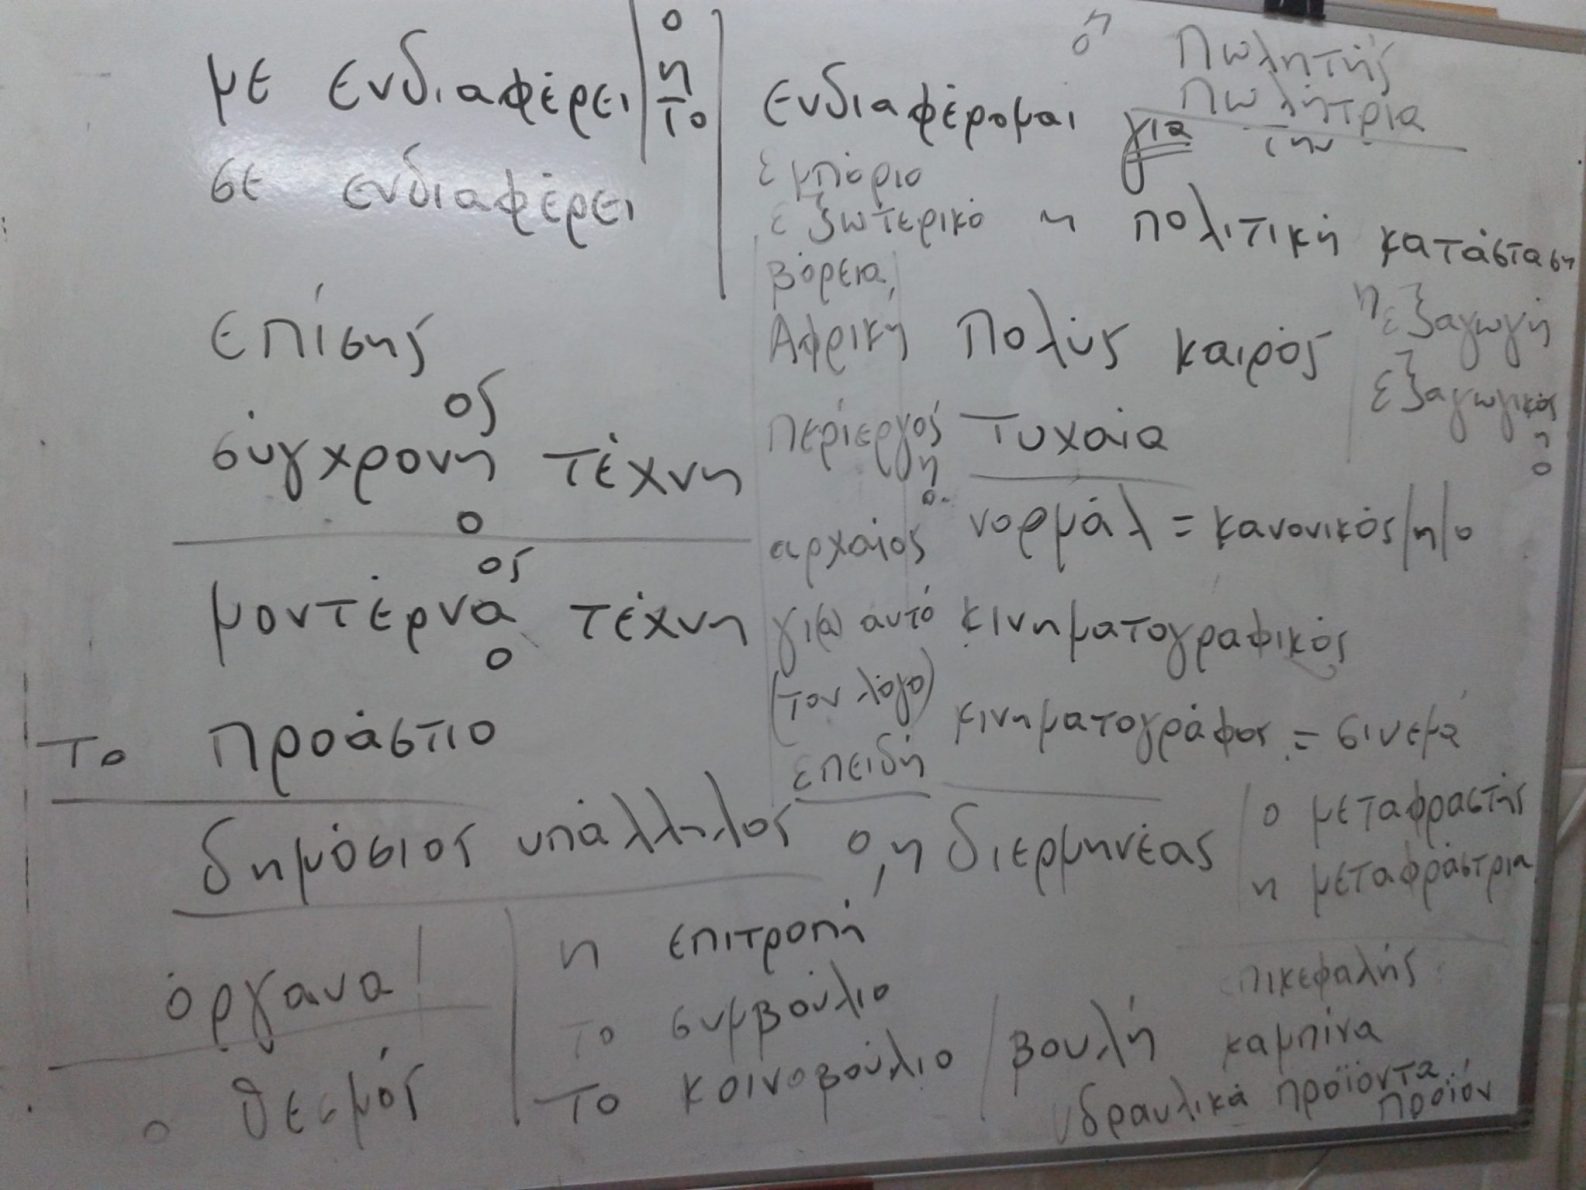 με ενδιαφέρει
ο
η
το
σε ενδιαφέρει
επίσης
ος
σύγχρονη τέχνη
ο
ος
μοντέρνα τέχνη
ο
το προάστιο
δημόσιος υπάλληλος
όργανα
ο θεσμός
ο η πωλητής
πωλήτρια
ενδιαφέρομαι για την
εμπόριο
εξωτερικό η πολιτική κατάσταση
βόρεια
Αφρική πολύς καιρός
η εξαγωγή
εξαγωγικός
η
ο
περίεργος τυχαία
η
ο
αρχαίος νορμάλ = κανονικός/η/ο
γι(α) αυτό κινηματογραφικός
(τον λόγο)
κινηματογράφος = σινεμά
επειδή
ο, η διερμηνέας
ο μεταφραστής
η μεταφράστρια
η επιτροπή
το συμβούλιο
το κοινοβούλιο / βουλή
πικεφαλής
καμπίνα
υδραυλικά προϊόντα
προϊόν